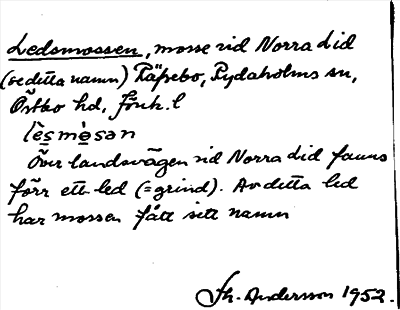 Ledsmossen, mosse vid Norra Lid
(se detta namn) Räpsebo, Rydaholms sn,
Östbo hd, Jönk. l
lèsmòsən
Över landsvägen vid Norra Lid fanns
förr ett led (= grind). Av detta led
har mossen fått sitt namn
Th. Andersson 1952.